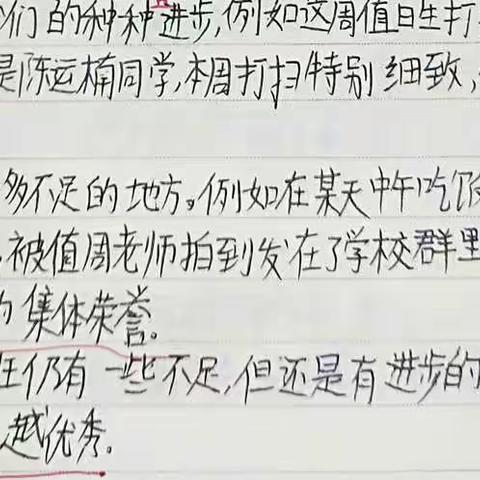 们的种种进步,例如这周值日生打
是陈运楠同学,本周打扫特别细致,
多不足的地方。例如在某天中午吃饭
被值周老师拍到发在了学校群里
集体荣誉。
仍有一些不足,但还是有进步的
越优秀.